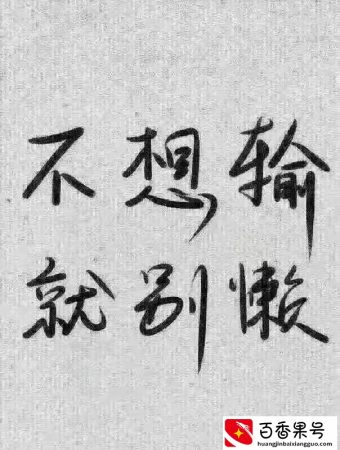 不想输
就别懒
百香果号
huangjinbaixiangguo.com